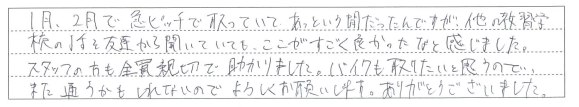 1月、2月で急ピッチで取っていて、あっという間だったんですが、他の教習学
校の話を友達から聞いていても、ここがすごく良かったなと感じました。
スタッフの方も全員親切で助かりました。バイクも取りたいと思うので、
また通うかもしれないのでよろしくお願いします。ありがとうございました。